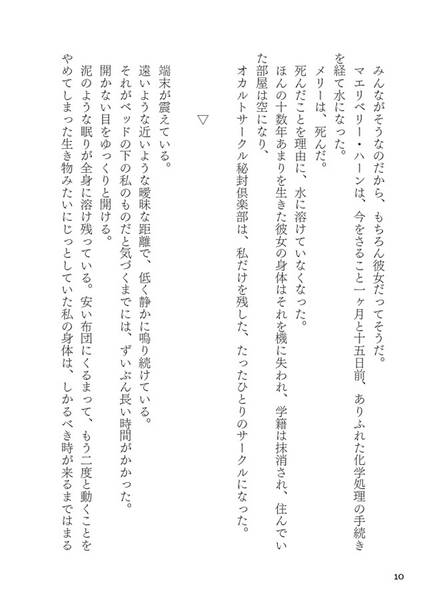 みんながそうなのだから、もちろん彼女だってそうだ。
マエリベリー・ハーンは、今をさること一ヶ月と十五日前、ありふれた化学処理の手続き
を経て水になった。
メリーは、死んだ。
死んだことを理由に、水に溶けていなくなった。
ほんの十数年あまりを生きた彼女の身体はそれを機に失われ、学籍は抹消され、住んでい
た部屋は空になり、
オカルトサークル秘封倶楽部は、私だけを残した、たったひとりのサークルになった。
▽
端末が震えている。
遠いような近いような曖昧な距離で、低く静かに鳴り続けている。
それがベッドの下の私のものだと気づくまでには、ずいぶん長い時間がかかった。
開かない目をゆっくりと開ける。
泥のような眠りが全身に溶け残っている。安い布団にくるまって、もう二度と動くことを
やめてしまった生き物みたいにじっとしていた私の身体は、しかるべき時が来るまではまる
10